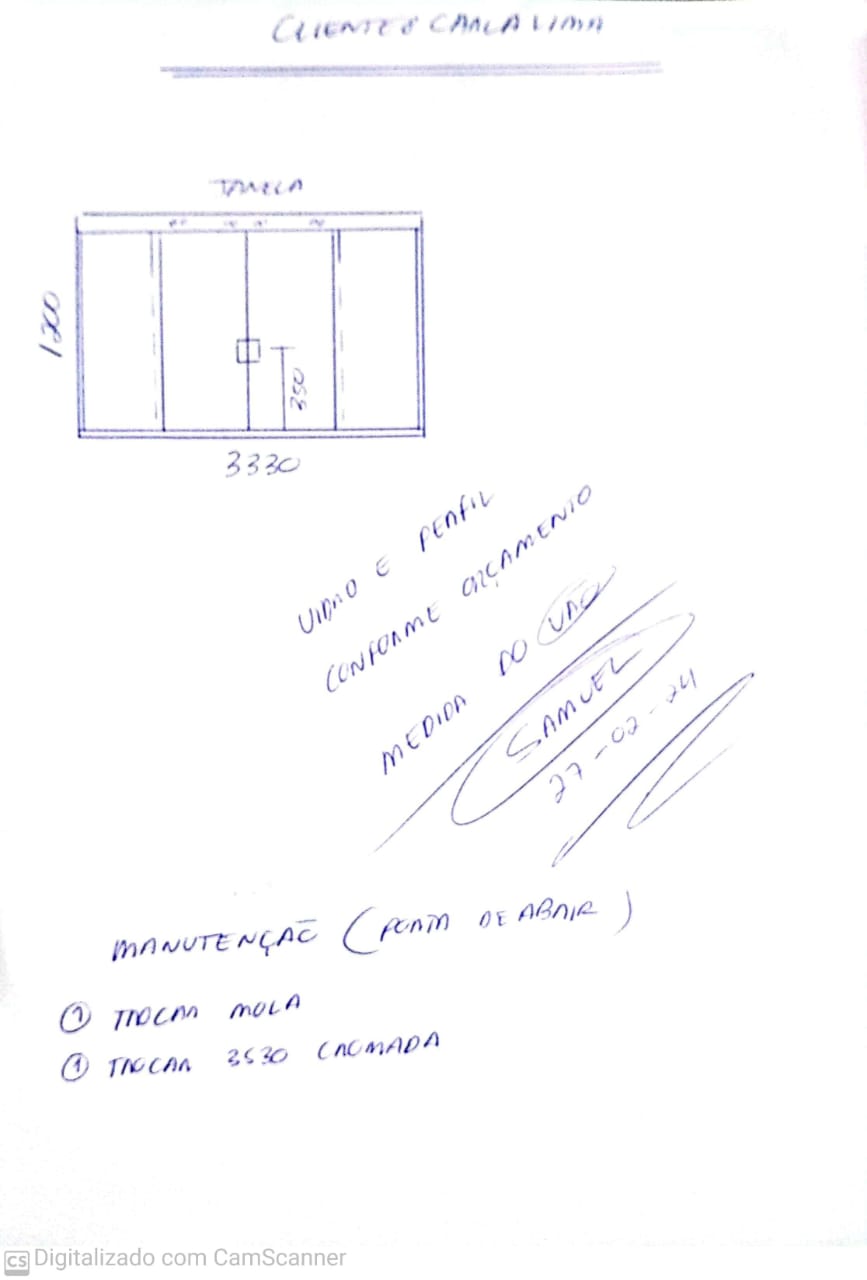 CLIENTE: CARLA LIMA
JANELA
1200
350
3330
VIDRO E PERFIL
CONFORME ORÇAMENTO
MEDIDA DO VÃO
SAMUEL
27-02-24
MANUTENÇÃO (PORTA DE ABRIR)
① TROCAR MOLA
① TROCAR 3530 CROMADA
CS Digitalizado com CamScanner